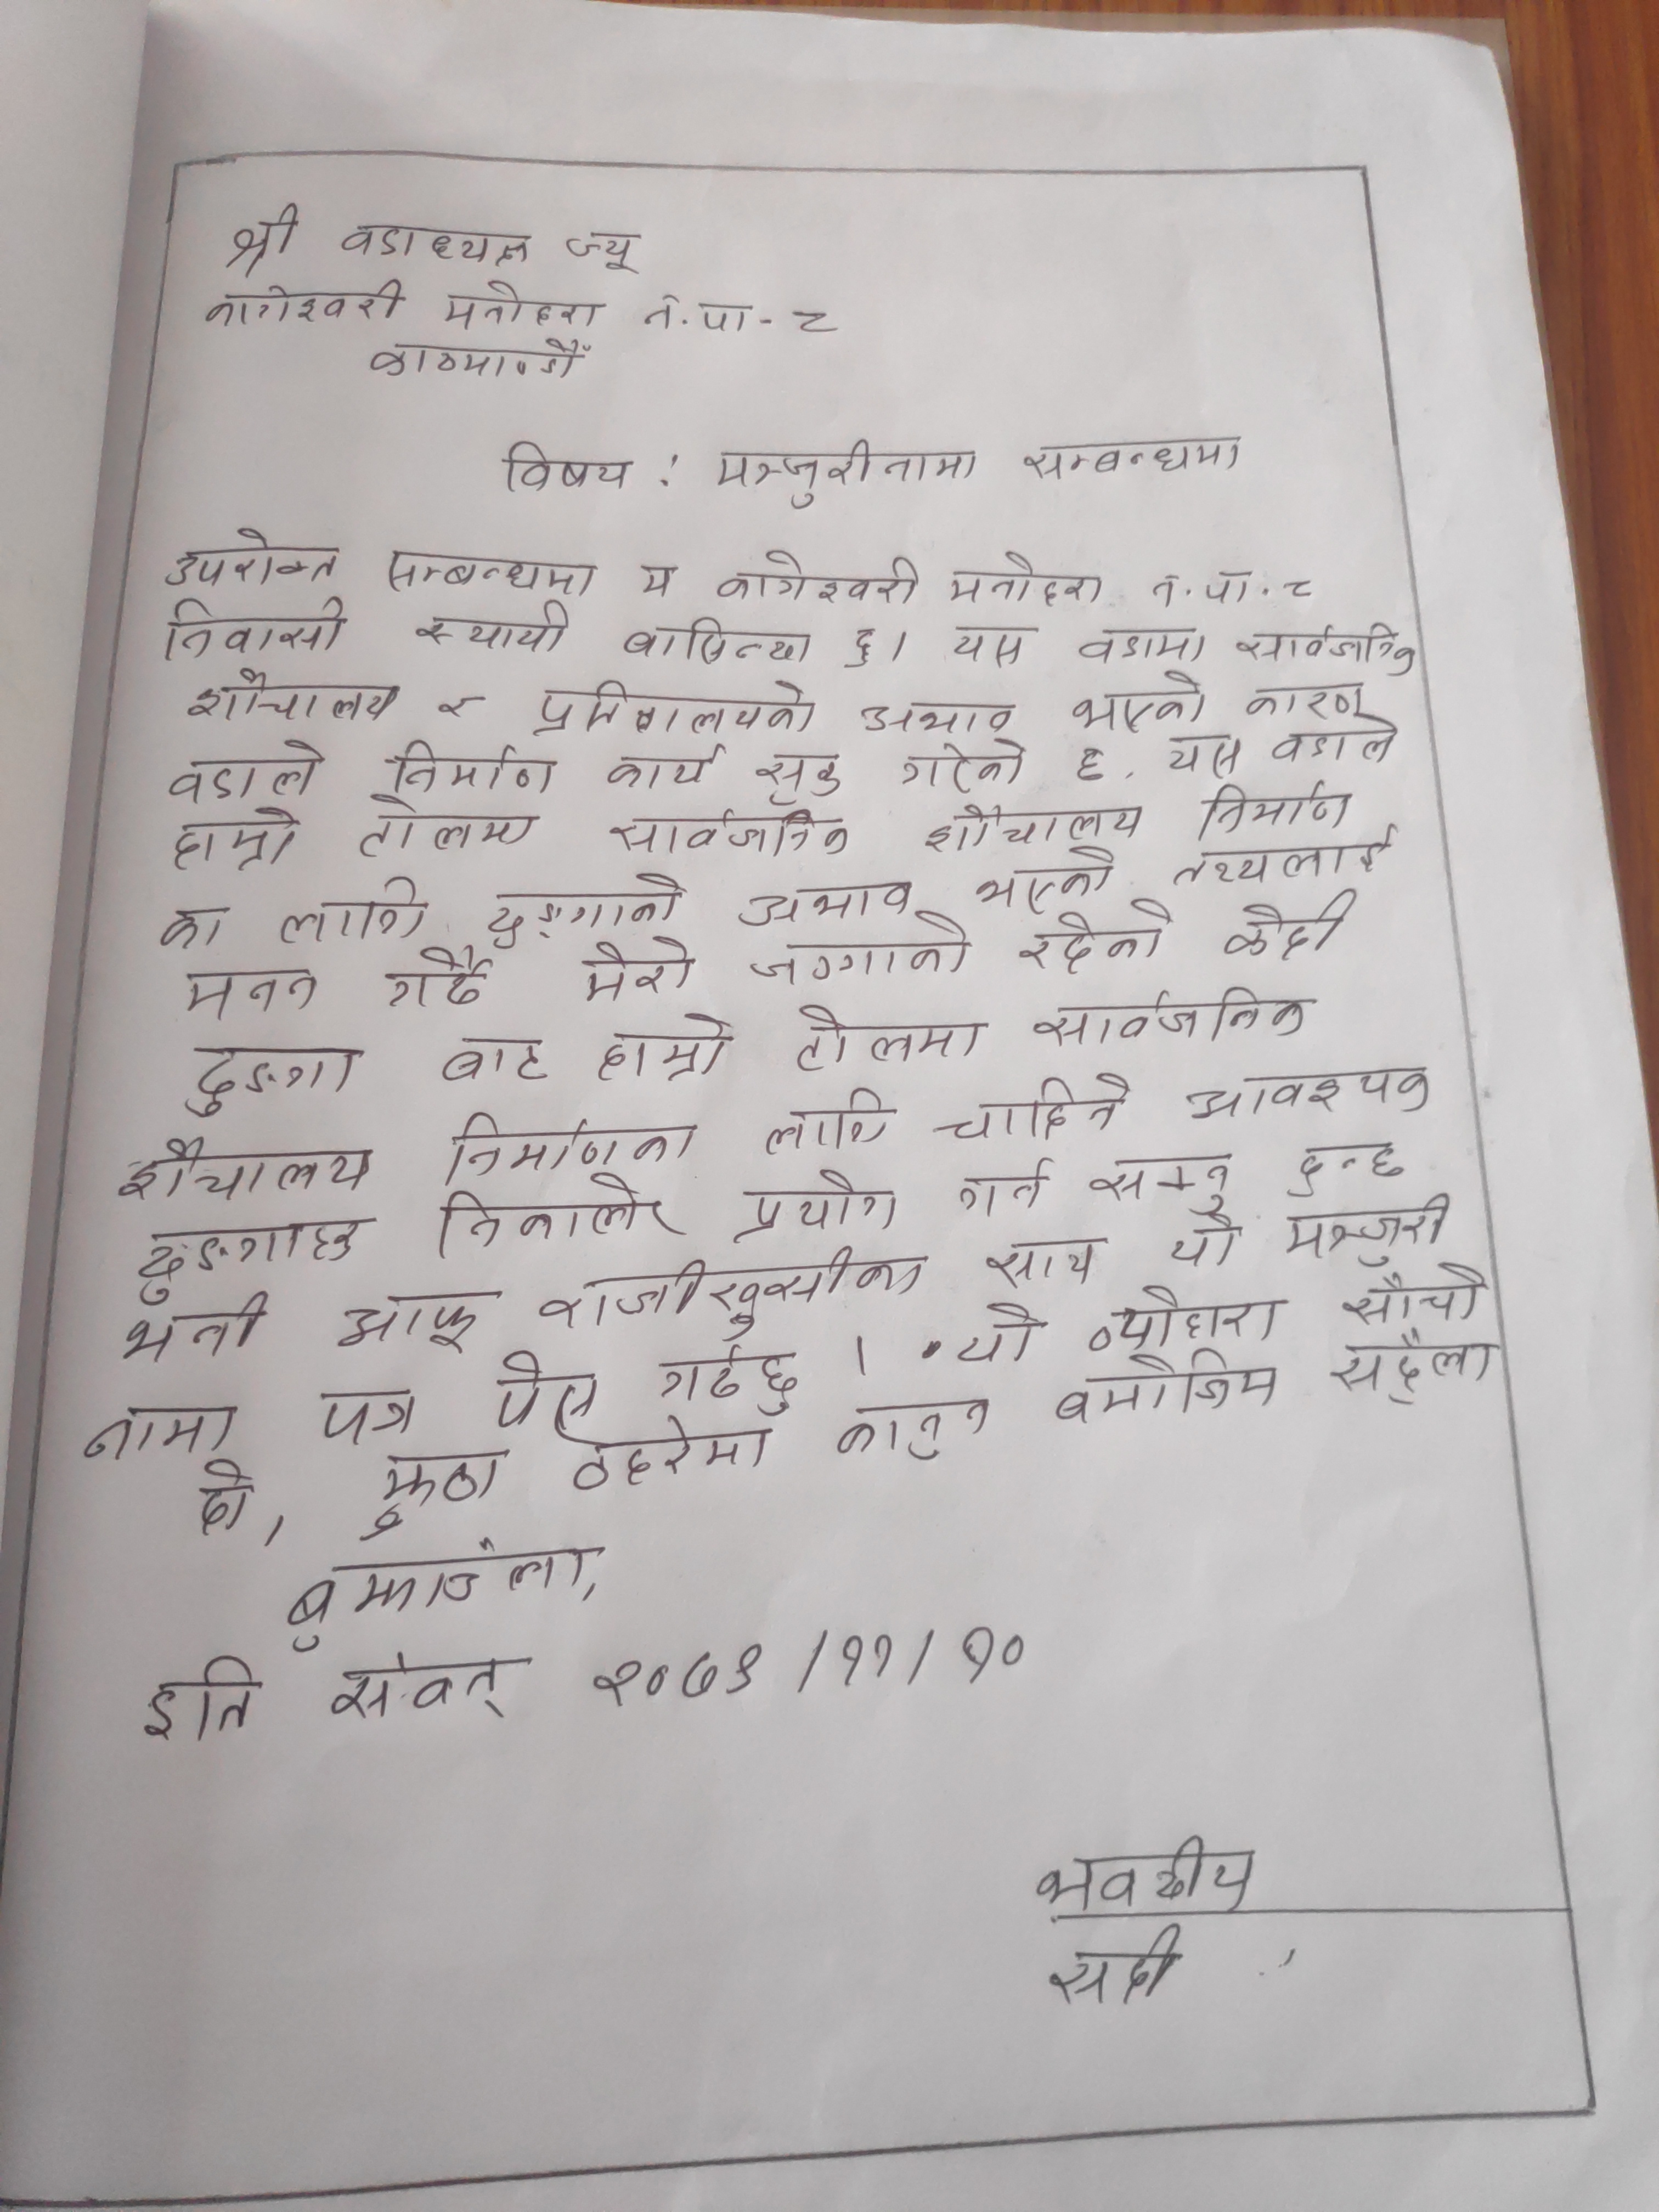 श्री वडाध्यक्ष ज्यू
कागेश्वरी मनोहरा न.पा-८
काठमाण्डौँ
विषय : मञ्जुरीनामा सम्बन्धमा
उपरोक्त सम्बन्धमा म कागेश्वरी मनोहरा न.पा.८
निवासी स्थायी बासिन्दा हु। यस वडामा सार्वजनिक
शौचालय र प्रतिक्षालयको अभाव भएको कारण
वडाले निर्माण कार्य सुरु गरेको छ. यस वडाले
हाम्रो टोलमा सार्वजनिक शौचालय निर्माण
का लागि ढुङ्गाको अभाव भएको तथ्यलाई
मनन गर्दै मेरो जग्गाको रहेको केही
ढुङ्गा बाट हाम्रो टोलमा सार्वजनिक
शौचालय निर्माणका लागि चाहिने आवश्यक
ढुङ्गाहरु निकालेर प्रयोग गर्न सक्नु हुन्छ
भनी आफू राजीखुसीका साथ यो मञ्जुरी
नामा पत्र पेस गर्दछु । यो व्योहोरा साँचो
हो, झुठा ठहरेमा कानुन बमोजिम सहुँला
बुझाउँला,
इति संवत् २०७९ /११/ १०
भवदीय
सही